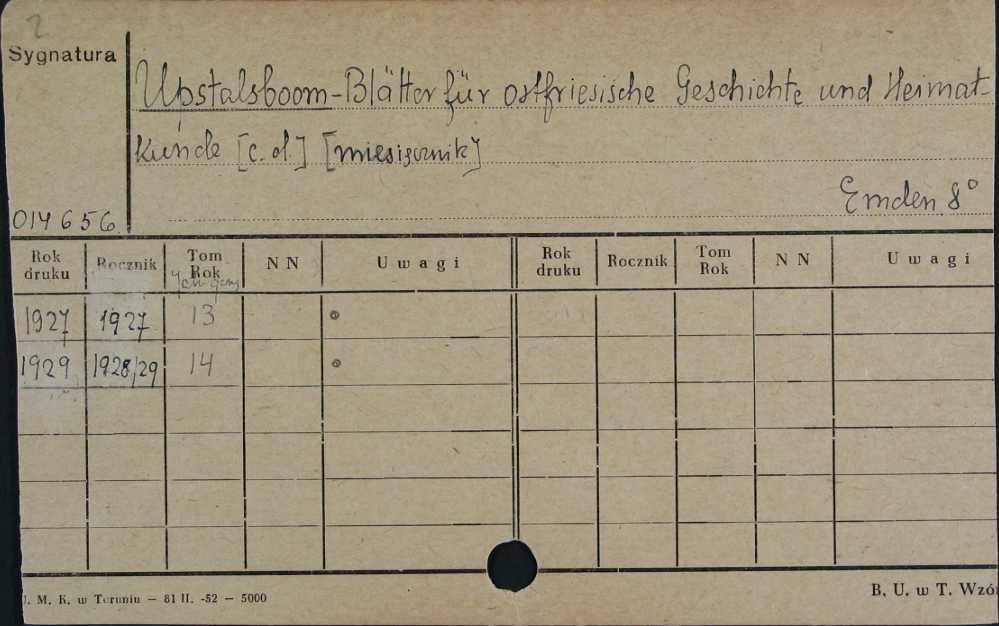 2
Sygnatura
Upstalsboom-Blätter für ostfriesische Geschichte und Heimat-
kunde [c.d.] [miesięcznik]
Emden 8°
014656
Rok druku Rocznik Tom Rok NN Uwagi Rok druku Rocznik Tom Rok NN Uwagi
1927 1927 13
1929 1928/29 14
M. K. w Toruniu – 81 II. -52 – 5000
B. U. w T. Wzó